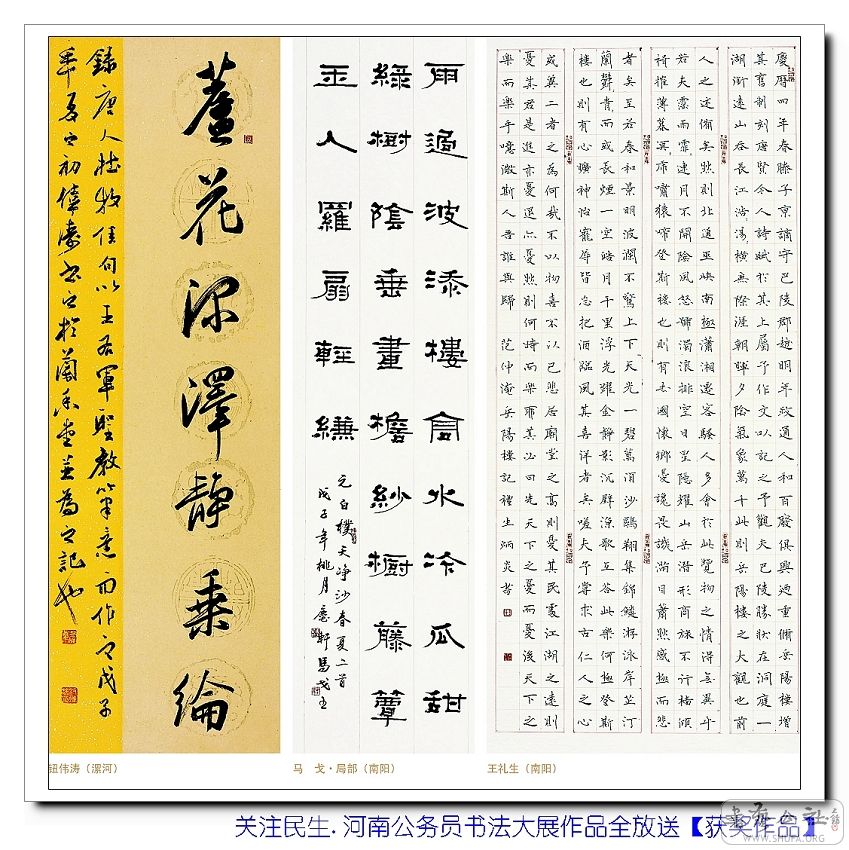 蘆花深澤靜垂綸
錄唐人杜牧佳句以王右軍聖教筆意而作之戊子
年夏之初偉濤書之於蘭香堂並為之記也
雨過波添樓高水冷瓜甜
綠樹陰垂畫檐紗櫥藤簟
玉人羅扇輕縑
元白樸天淨沙春夏二首
戊子年桃月 軒馬戈書
慶曆四年春滕子京謫守巴陵郡越明年政通人和百廢俱興迺重脩岳陽樓增
其舊制刻唐賢今人詩賦於其上屬予作文以記之予觀夫巴陵勝狀在洞庭一
湖銜遠山吞長江浩浩湯湯橫無際涯朝暉夕陰氣象萬千此則岳陽樓之大觀也前
人之述備矣然則北通巫峽南極瀟湘遷客騷人多會於此覽物之情得無異乎
若夫霪雨霏霏連月不開陰風怒號濁浪排空日星隱耀山岳潛形商旅不行檣傾
楫摧薄暮冥冥虎嘯猿啼登斯樓也則有去國懷鄉憂讒畏譏滿目蕭然感極而悲
者矣至若春和景明波瀾不驚上下天光一碧萬頃沙鷗翔集錦鱗游泳岸芷汀
蘭鬱鬱青青而或長煙一空皓月千里浮光躍金靜影沉璧漁歌互答此樂何極登斯
樓也則有心曠神怡寵辱皆忘把酒臨風其喜洋洋者矣嗟夫予嘗求古仁人之心
或異二者之為何哉不以物喜不以己悲居廟堂之高則憂其民處江湖之遠則
憂其君是進亦憂退亦憂然則何時而樂耶其必曰先天下之憂而憂後天下之
樂而樂乎噫微斯人吾誰與歸 范仲淹岳陽樓記禮生炳炎書
钮伟涛（漯河）
马　戈·局部（南阳）
王礼生（南阳）
关注民生.河南公务员书法大展作品全放送【获奖作品】
WWW.SHUFA.ORG